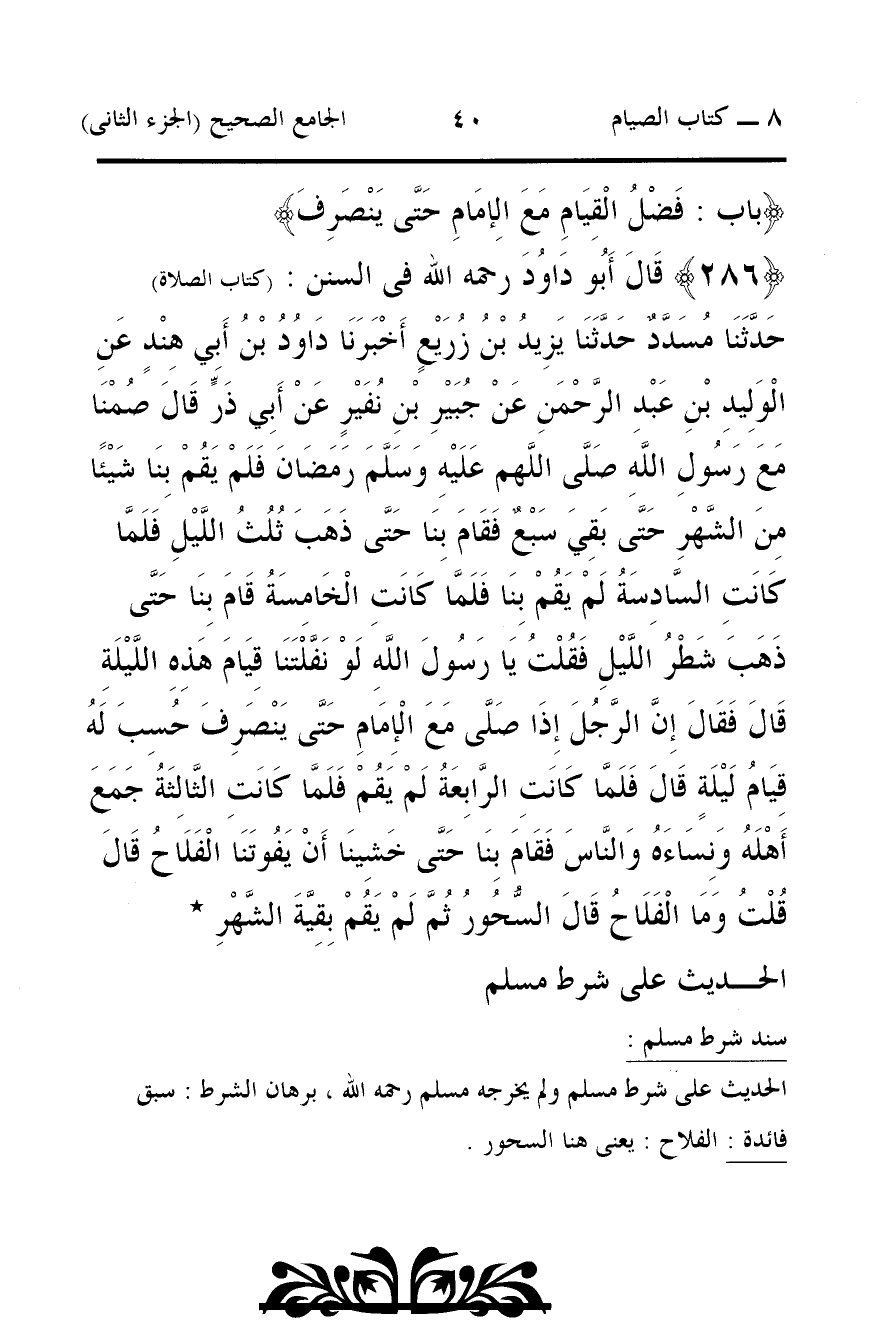 ٨ ــ كتاب الصيام ٤٠ الجامع الصحيح (الجزء الثانى)
﴿باب : فَضْلُ الْقِيَامِ مَعَ الإِمَامِ حَتَّى يَنْصَرِفَ﴾
﴿٢٨٦﴾ قَالَ أَبُو دَاوُدَ رحمه الله فى السنن : (كتاب الصلاة)
حَدَّثَنَا مُسَدَّدٌ حَدَّثَنَا يَزِيدُ بْنُ زُرَيْعٍ أَخْبَرَنَا دَاوُدُ بْنُ أَبِي هِنْدٍ عَنِ
الْوَلِيدِ بْنِ عَبْدِ الرَّحْمَنِ عَنْ جُبَيْرِ بْنِ نُفَيْرٍ عَنْ أَبِي ذَرٍّ قَالَ صُمْنَا
مَعَ رَسُولِ اللَّهِ صَلَّى اللهم عَلَيْهِ وَسَلَّمَ رَمَضَانَ فَلَمْ يَقُمْ بِنَا شَيْئًا
مِنَ الشَّهْرِ حَتَّى بَقِيَ سَبْعٌ فَقَامَ بِنَا حَتَّى ذَهَبَ ثُلُثُ اللَّيْلِ فَلَمَّا
كَانَتِ السَّادِسَةُ لَمْ يَقُمْ بِنَا فَلَمَّا كَانَتِ الْخَامِسَةُ قَامَ بِنَا حَتَّى
ذَهَبَ شَطْرُ اللَّيْلِ فَقُلْتُ يَا رَسُولَ اللَّهِ لَوْ نَفَّلْتَنَا قِيَامَ هَذِهِ اللَّيْلَةِ
قَالَ فَقَالَ إِنَّ الرَّجُلَ إِذَا صَلَّى مَعَ الْإِمَامِ حَتَّى يَنْصَرِفَ حُسِبَ لَهُ
قِيَامُ لَيْلَةٍ قَالَ فَلَمَّا كَانَتِ الرَّابِعَةُ لَمْ يَقُمْ فَلَمَّا كَانَتِ الثَّالِثَةُ جَمَعَ
أَهْلَهُ وَنِسَاءَهُ وَالنَّاسَ فَقَامَ بِنَا حَتَّى خَشِينَا أَنْ يَفُوتَنَا الْفَلَاحُ قَالَ
قُلْتُ وَمَا الْفَلَاحُ قَالَ السُّحُورُ ثُمَّ لَمْ يَقُمْ بِقِيَّةَ الشَّهْرِ *
الحـــديث على شرط مسلم
سند شرط مسلم :
الحديث على شرط مسلم ولم يخرجه مسلم رحمه الله ، برهان الشرط : سبق
فائدة : الفلاح : يعنى هنا السحور .